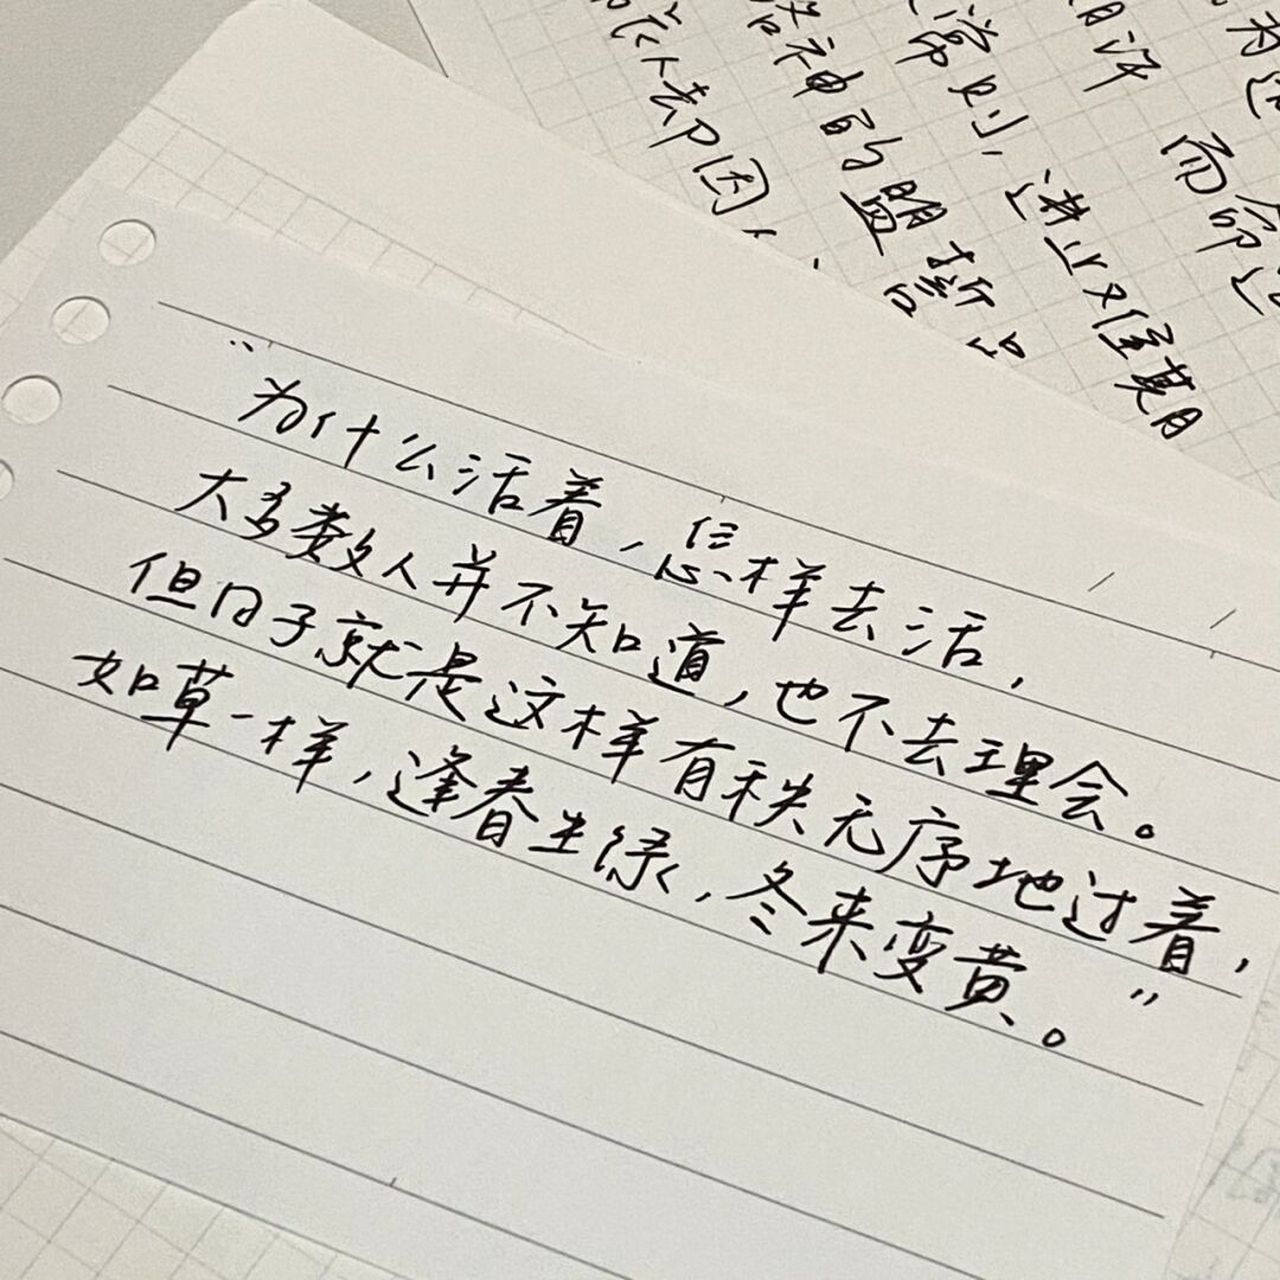 "为什么活着，怎样去活，
大多数人并不知道，也不去理会。
但日子就是这样有秩无序地过着，
如草一样，逢春生绿，冬来变黄。"
去却因
神的盟誓
常则，进
期许
而命